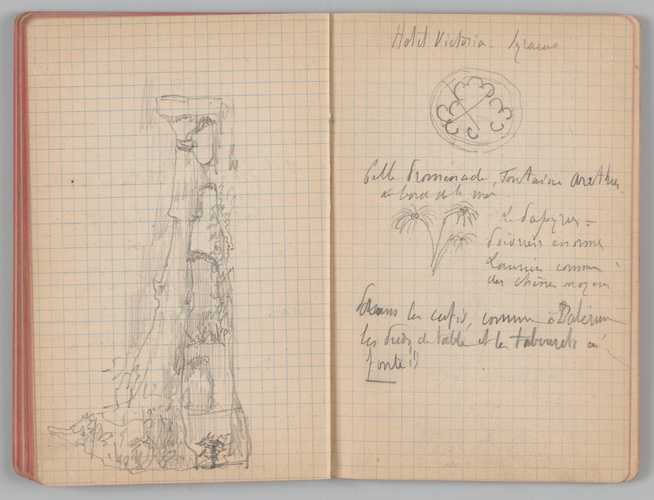 Hotel Victoria. Syracuse
Belle Promenade, Fontaine Arethuse
au bord de la mer
Le Papyrus =
énormes
Lauriers comme
des chênes moyens
Dans les cafés, comme à Palerme
les pieds de table et les tabourets en
fonte !!